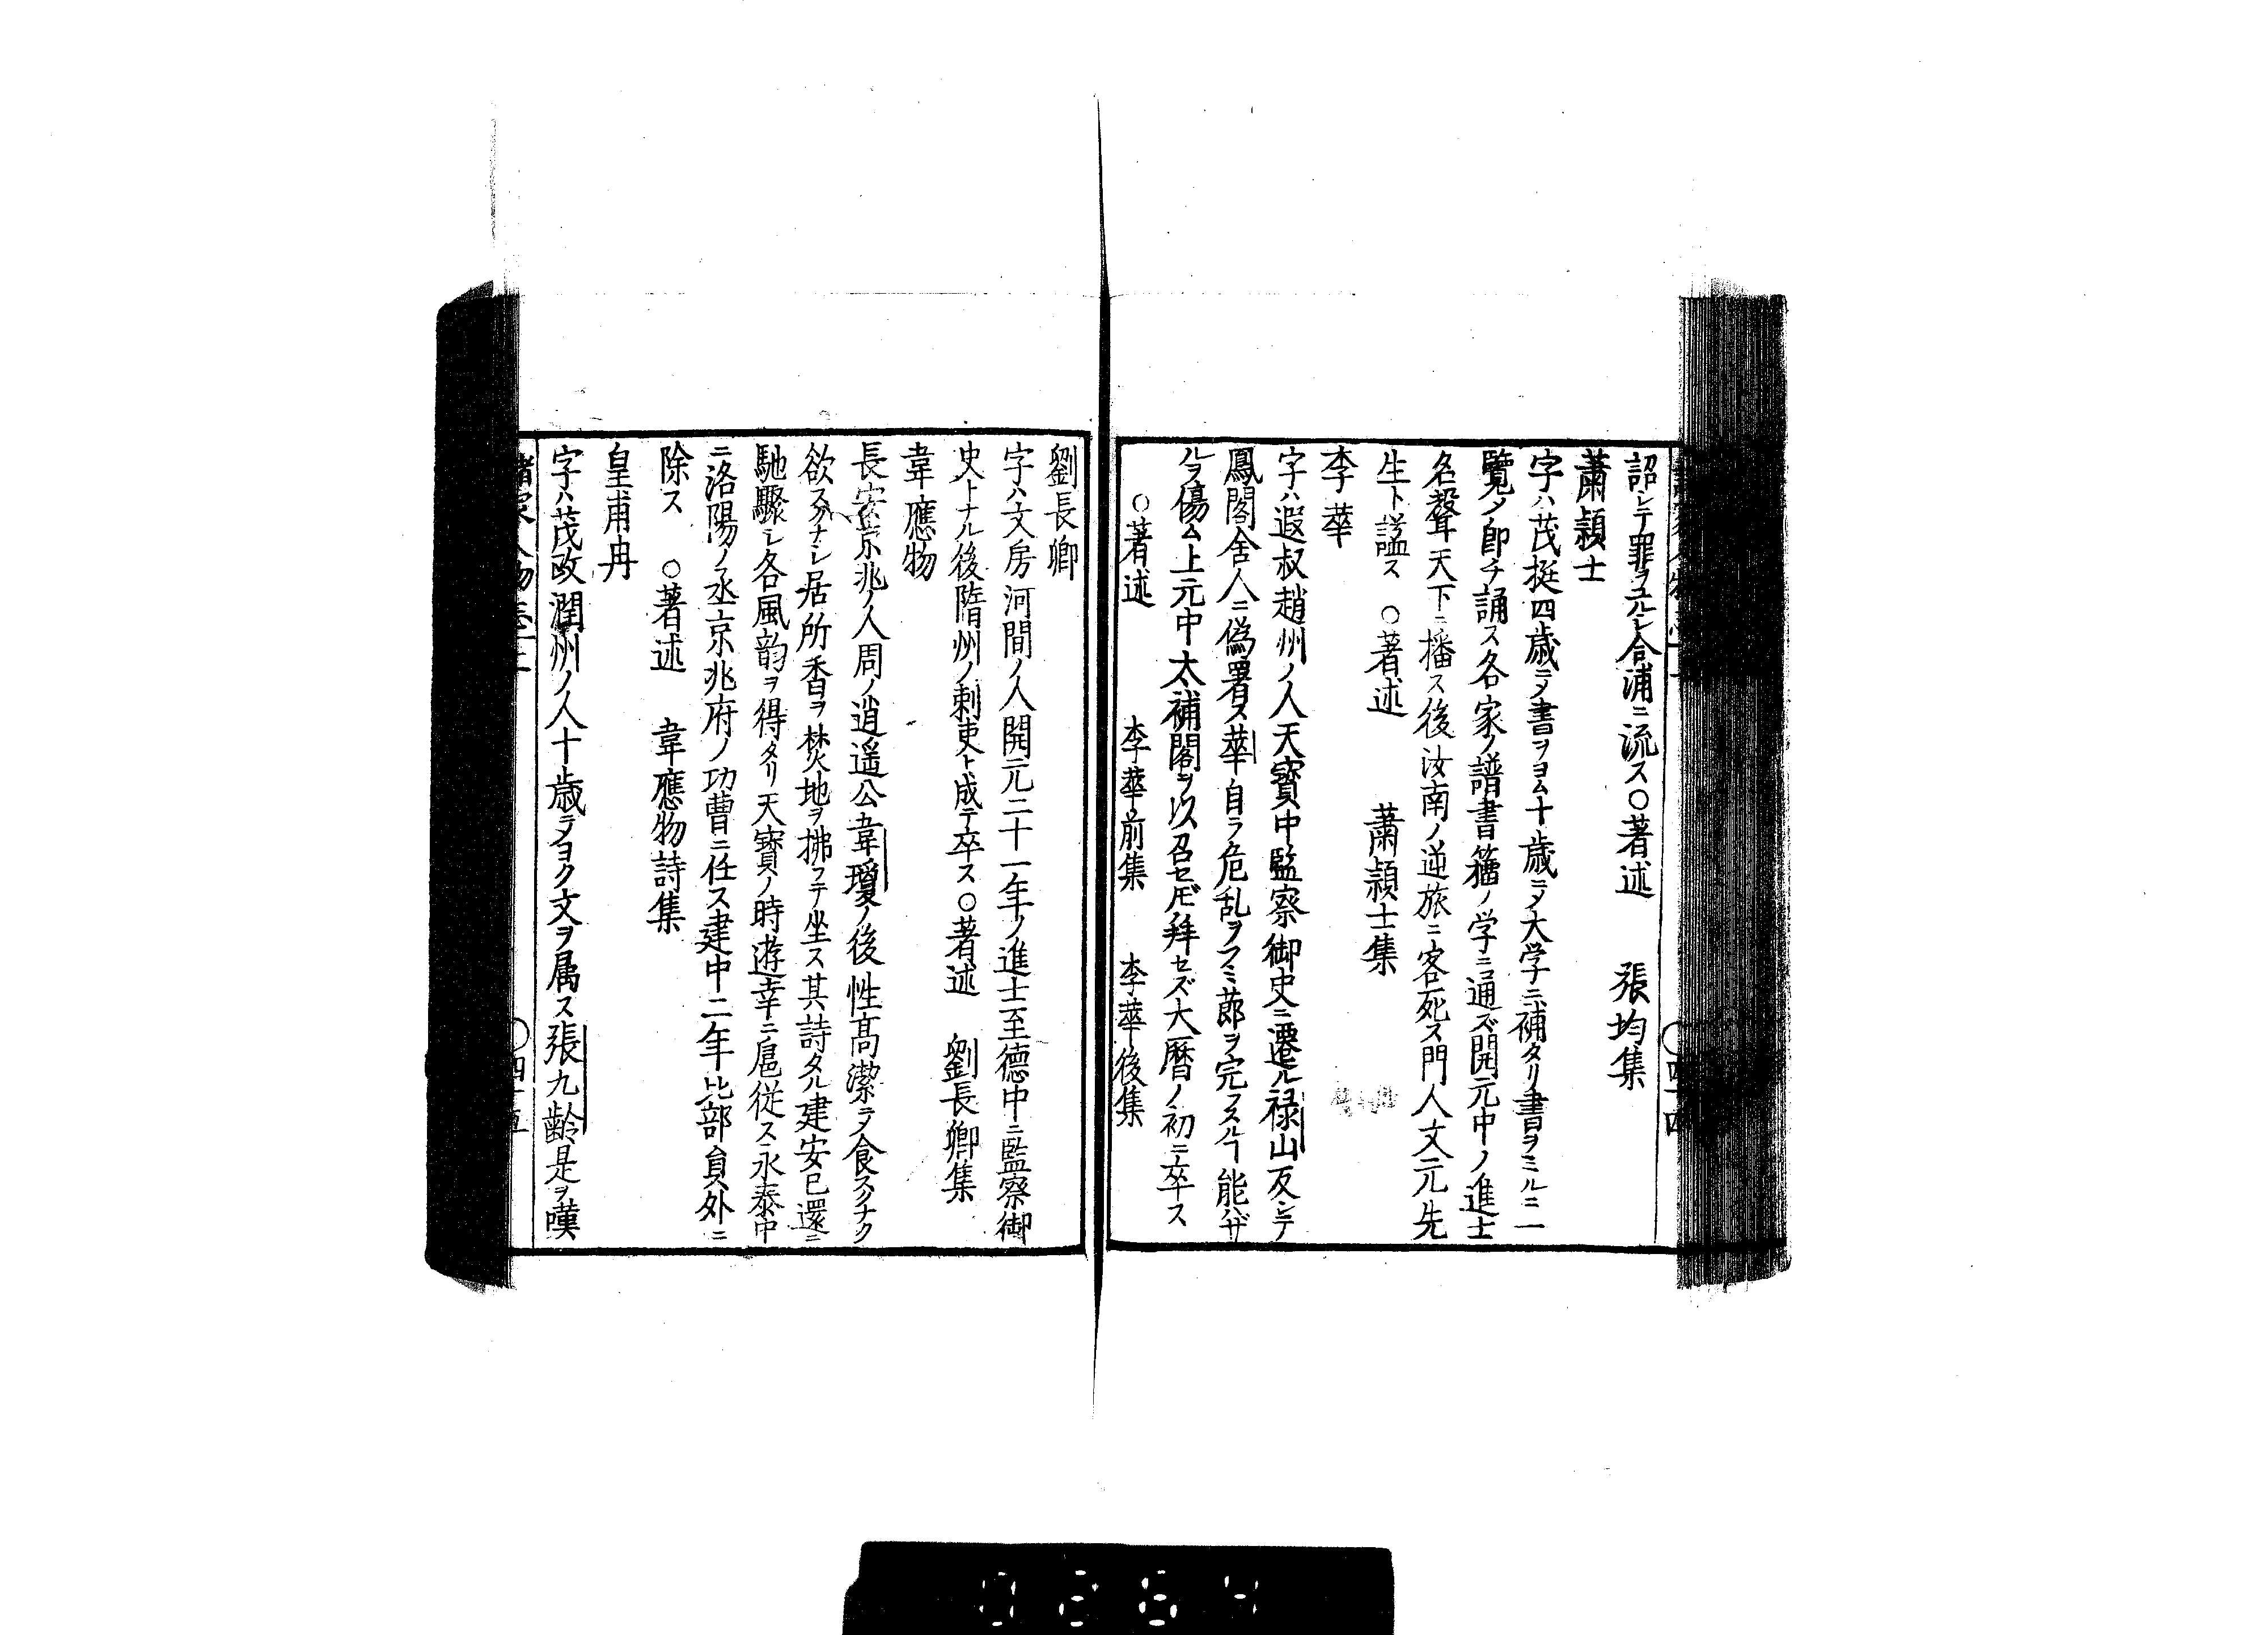 詔シテ罪ヲユルシ合浦ニ流ス〇著述　張均集
蕭頴士
字ハ茂挺四歳ニテ書ヲヨム十歳ニテ大学ニ補タリ書ヲミルニ一
覧〆即チ誦ス各家ノ譜書籀ノ学ニ通ズ開元中ノ進士
名聲天下ニ播ス後汝南ノ逆旅ニ客死ス門人文元先
生ト謚ス　〇著述　蕭頴士集
李華
字ハ遐叔趙州ノ人天寳中監察御史ニ遷ル禄山反シテ
鳳閣舍人ニ偽署ス華自ラ危乱ヲフミ節ヲ完フスルヿ能ハザ
ルヲ傷ム上元中太補閣ヲ以召セ𪜈拜セズ大暦ノ初ニ卒ス
〇著述　李華前集　李華後集
劉長卿
字ハ文房河間ノ人開元二十一年ノ進士至德中ニ監察御
史トナル後隋州ノ刺吏ト成テ卒ス〇著述　劉長卿集
韋應物
長安京兆ノ人周ノ逍遥公韋瓊ノ後性髙潔ヲ食スクナク
欲スクナシ居所香ヲ焚地ヲ拂フテ坐ス其詩タル建安已還ニ
馳驟シ各風韵ヲ得タリ天寳ノ時遊幸ニ扈従ス永泰中
ニ洛陽ノ丞京兆府ノ功曹ニ任ス建中二年比部員外ニ
除ス　〇著述　韋應物詩集
皇甫冉
字ハ茂政潤州ノ人十歳ニテヨク文ヲ属ス張九齡是ヲ嘆
諸家人物志
〇四十五